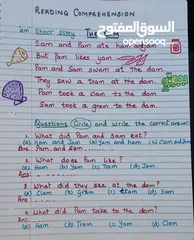 READING COMPREHENSION
السوق المفتوح
opensooq.com
"am" Short Story
Sam and Pam ate ham and jam.
But Pam likes yam
Pam and Sam swam at the dam.
They saw a tram at the dam.
Pam took a clam to the dam
Sam took a gram to the dam.
Questions (Circle) and write the correct answer:
1. What did Pam and Sam eat?
(a) Ham and Jam (b) Yam and ham (c) Clam and Jam
Ans: Pam and Sam
2. What does Pam like?
(a) Ham (b) Yam (c) Tram (d) Jam
Ans:
3. What did they see at the dam?
(a) Clam (b) Gram (c) Tram (d) Yam
Ans:
4. What did Pam take to the dam?
(a) Ham (b) Tram (c) Yam (d) Clam